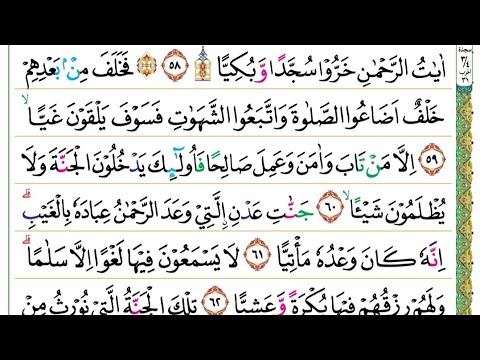 اٰيٰتُ الرَّحْمٰنِ خَرُّوْا سُجَّدًا وَّبُكِيًّا ۩ ﴿۵۸﴾ فَخَلَفَ مِنْۢ بَعْدِهِمْ
خَلْفٌ اَضَاعُوا الصَّلٰوةَ وَاتَّبَعُوا الشَّهَوٰتِ فَسَوْفَ يَلْقَوْنَ غَيًّا ۙ
﴿۵۹﴾ اِلَّا مَنْ تَابَ وَاٰمَنَ وَعَمِلَ صَالِحًا فَاُولٰٓئِكَ يَدْخُلُوْنَ الْجَنَّةَ وَلَا
يُظْلَمُوْنَ شَيْـًٔا ۙ ﴿۶۰﴾ جَنّٰتِ عَدْنِ ࣙالَّتِيْ وَعَدَ الرَّحْمٰنُ عِبَادَهٗ بِالْغَيْبِ ؕ
اِنَّهٗ كَانَ وَعْدُهٗ مَاْتِيًّا ﴿۶۱﴾ لَا يَسْمَعُوْنَ فِيْهَا لَغْوًا اِلَّا سَلٰمًا ؕ
وَلَهُمْ رِزْقُهُمْ فِيْهَا بُكْرَةً وَّعَشِيًّا ﴿۶۲﴾ تِلْكَ الْجَنَّةُ الَّتِيْ نُوْرِثُ مِنْ